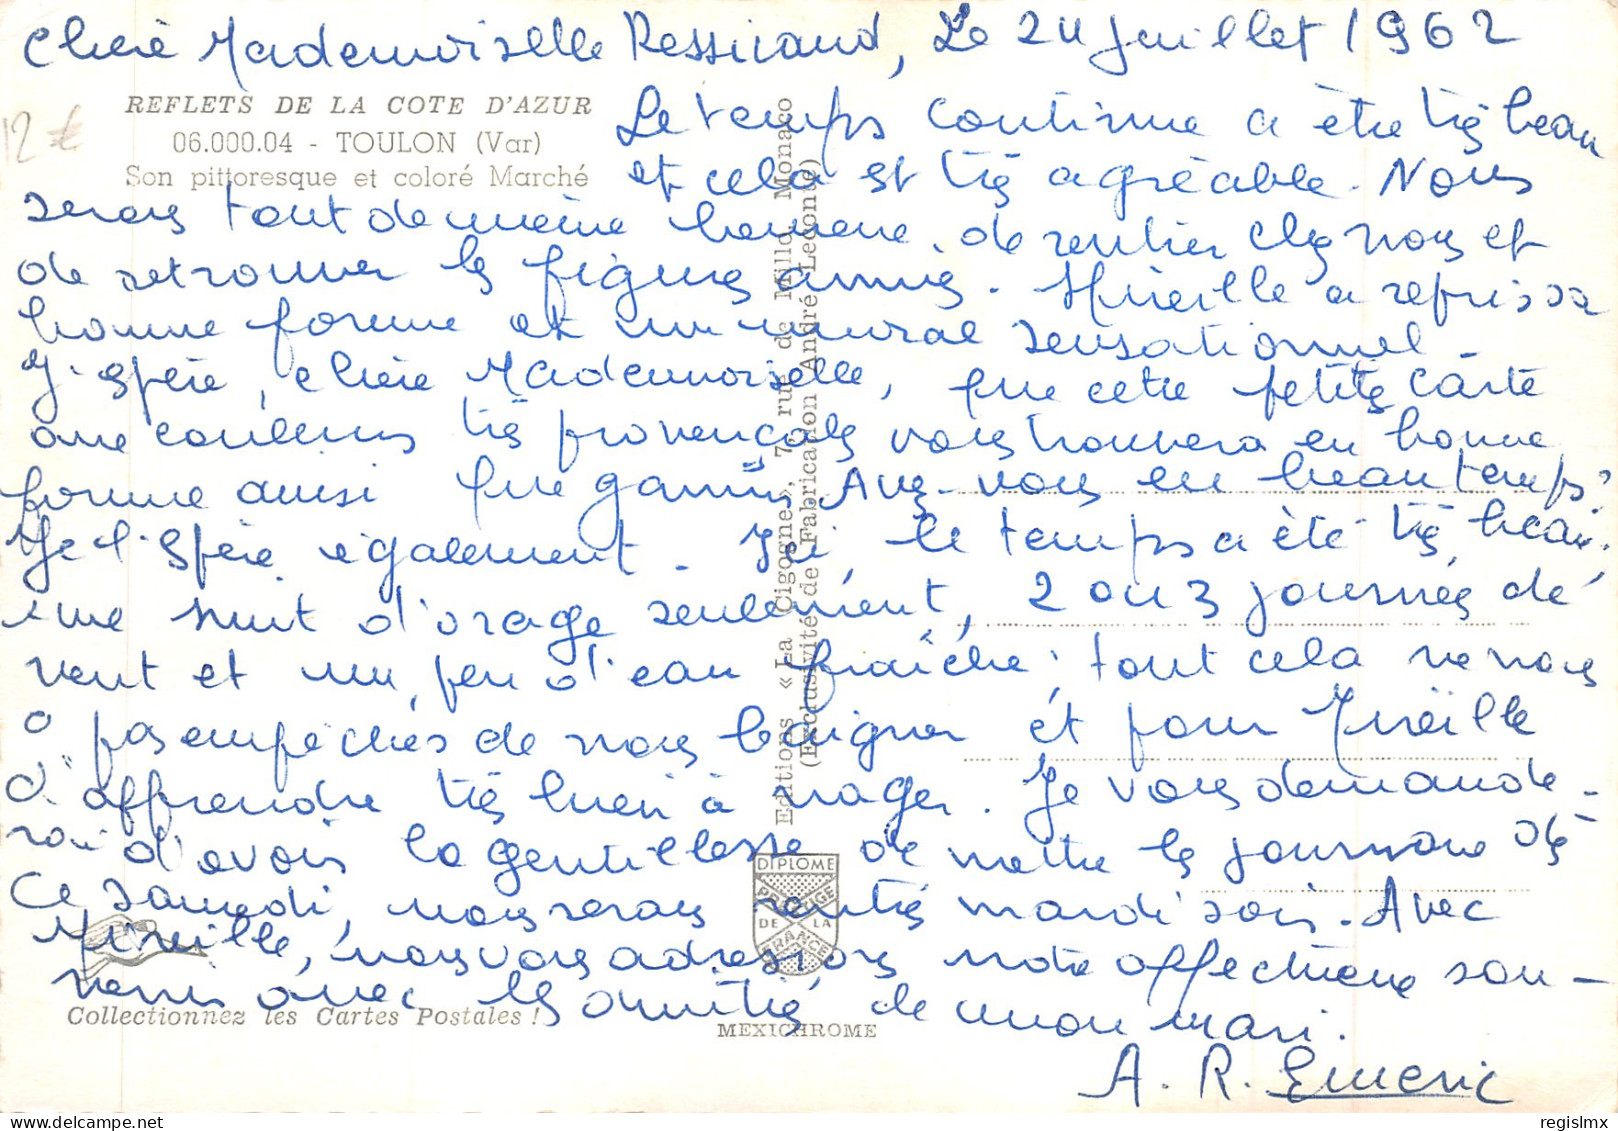 Chère Mademoiselle Ressicaud, Le 24 juillet 1962
12 €
REFLETS DE LA COTE D'AZUR
06.000.04 - TOULON (Var)
Son pittoresque et coloré Marché
Le temps continue a être très beau
et cela est très agréable. Nous
serons tout de même heureux de rentrer chez nous et
de retrouver les figures amies. Mireille a repris sa
bonne forme et un moral sensationnel -
J'espère, chère Mademoiselle, que cette petite carte
aux couleurs très provençales vous trouvera en bonne
forme aussi que gamine. Avez-vous eu beau temps?
Je l'espère également. Ici le temps a été très beau;
une nuit d'orage seulement, 2 ou 3 journées de
vent et un peu d'eau fraîche; tout cela ne nous
a pas empêchés de nous baigner et pour Mireille
d'apprendre très bien à nager. Je vous demande-
rai d'avoir la gentillesse de mettre le journal dès
ce samedi, nous serons rentrés mardi soir. Avec
Mireille, nous vous adressons notre affectueux sou-
venir avec les amitiés de mon mari.
A. R. Emeric
Editions « La Cigogne », 7, rue de Millo, Monaco
(Exclusivité de Fabrication André Leconte)
DIPLOME
PRESTIGE
DE LA
FRANCE
Collectionnez les Cartes Postales !
MEXICHROME
regislmx